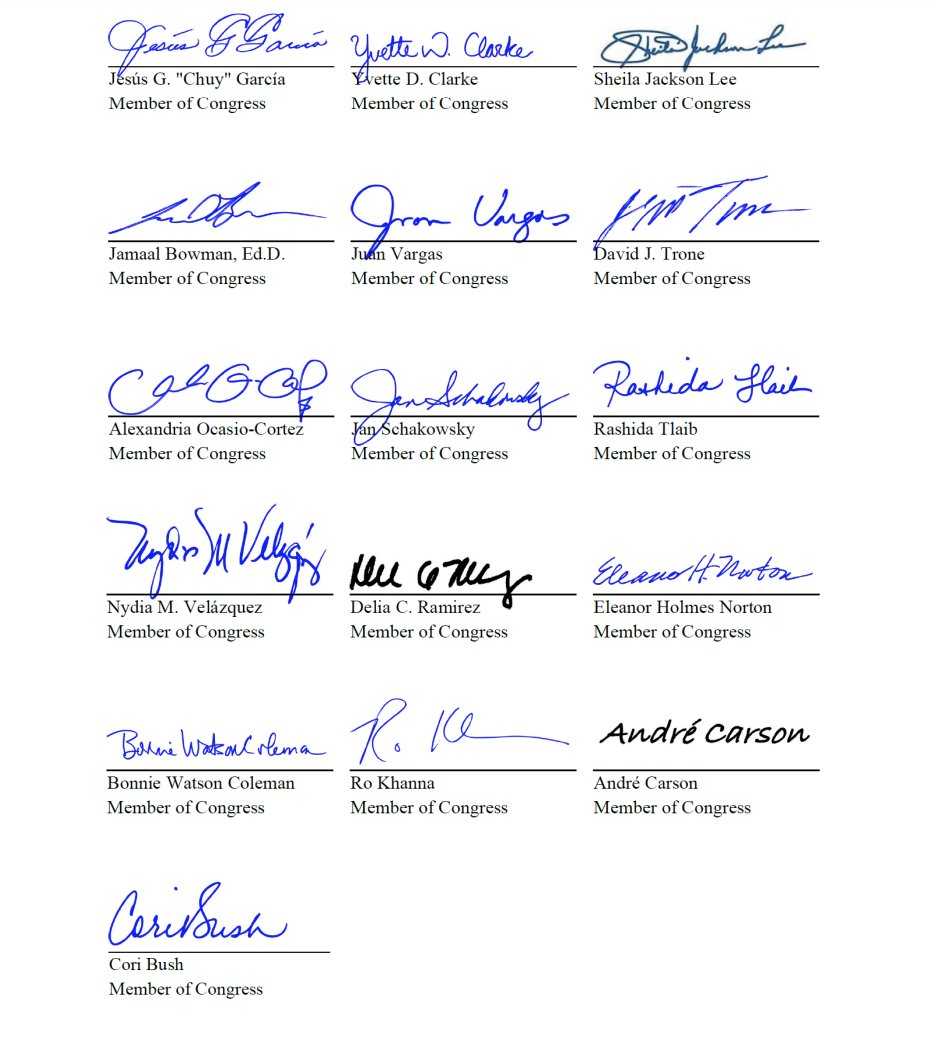 Jesús G García
Yvette D. Clarke
Sheila Jackson Lee
Jesús G. "Chuy" García
Yvette D. Clarke
Sheila Jackson Lee
Member of Congress
Member of Congress
Member of Congress
Juan Vargas
Jamaal Bowman, Ed.D.
Juan Vargas
David J. Trone
Member of Congress
Member of Congress
Member of Congress
Jan Schakowsky
Rashida Tlaib
Alexandria Ocasio-Cortez
Jan Schakowsky
Rashida Tlaib
Member of Congress
Member of Congress
Member of Congress
Nydia M Velázquez
Eleanor H. Norton
Nydia M. Velázquez
Delia C. Ramirez
Eleanor Holmes Norton
Member of Congress
Member of Congress
Member of Congress
Bonnie Watson Coleman
André Carson
Bonnie Watson Coleman
Ro Khanna
André Carson
Member of Congress
Member of Congress
Member of Congress
Cori Bush
Cori Bush
Member of Congress